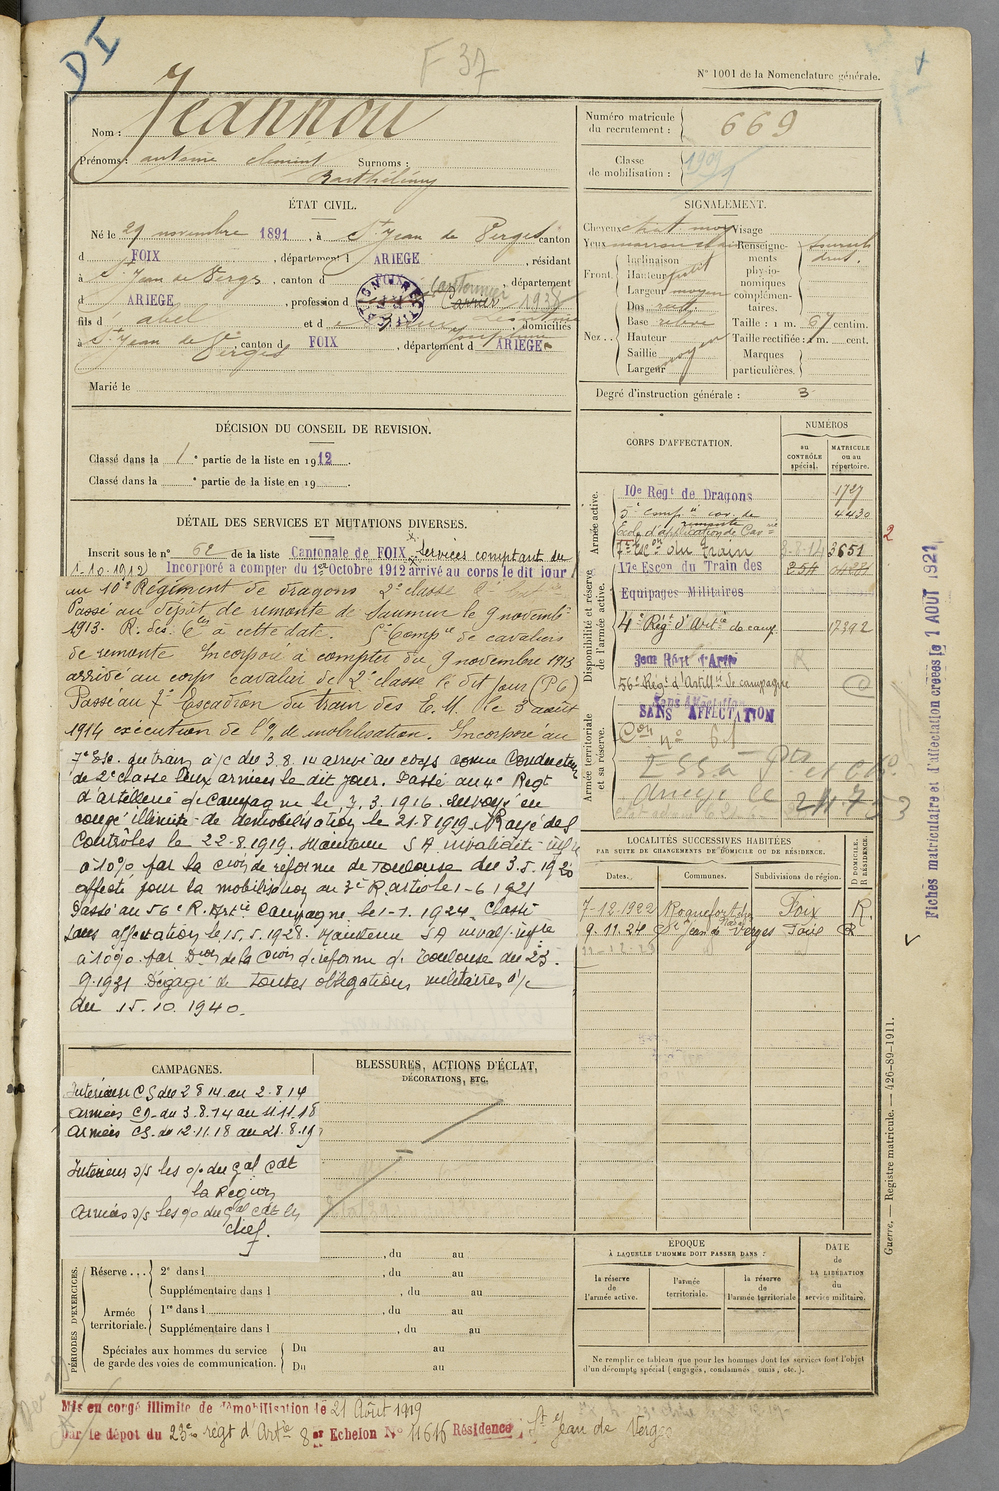 DI
F 37
N° 1001 de la Nomenclature générale.
Nom : Jeannou
Prénoms : antoine clément Surnoms :
Barthélémy
Numéro matricule
du recrutement : 669
Classe
de mobilisation : 1909
ÉTAT CIVIL.
Né le 29 novembre 1891, à St Jean de Verges canton
d FOIX, département d ARIEGE, résidant
à St Jean de Verges, canton d , département
d ARIEGE, profession d Cantonnier 1938
fils d abel et d , domiciliés
à St Jean de Verges, canton de FOIX, département d ARIEGE.
Marié le
SIGNALEMENT.
Cheveux chat moy Visage
Yeux marron clair Renseigne-
ments
phy-io-
nomiques
complémen-
taires.
Front. Inclinaison
Hauteur petit
Largeur moyen
Nez.. Dos
Base
Hauteur
Saillie
Largeur moyen
Taille : 1 m. 67 centim.
Taille rectifiée : 1 m. cent.
Marques
particulières.
Degré d'instruction générale : 3
DÉCISION DU CONSEIL DE REVISION.
Classé dans la 1e partie de la liste en 1912.
Classé dans la e partie de la liste en 19
DÉTAIL DES SERVICES ET MUTATIONS DIVERSES.
Inscrit sous le n° 62 de la liste Cantonale de FOIX. Services comptant du
1-10-1912) Incorporé a compter du 1er Octobre 1912 arrivé au corps le dit jour
au 10e Régiment de dragons 2e classe
Passé au dépôt de remonte de Saumur le 9 novembre
1913. R. des Cles à cette date. 5e Compie de cavaliers
de remonte Incorporé à compter du 9 novembre 1913
arrivé au corps cavalier de 2e classe le dit jour (PC)
Passé au 7e Escadron du train des E. M. le 3 août
1914 exécution de l'o/ de mobilisation. Incorporé au
7e Esc. du train à/c du 3.8.14 arrivé au corps comme Conducteur
de 2e classe deux armées le dit jour. Passé au 4e Regt
d'artillerie de Campagne le 7.3.1916. Renvoyé en
congé illimité de démobilisation le 21.8.1919. Rayé des
Contrôles le 22-8-1919. Maintenu SA invalidité infre
à 10% par la Con de réforme de Toulouse du 3.5.1920
affecté pour la mobilisation au 3e R. artie le 1-6 1921
Passé au 56e R. Artie Campagne le 1-1. 1924. Classé
sans affectation le 15.5.1928. Maintenu SA inval. infre
à 10% par Don de la Con de réforme de Toulouse du 23.
9.1931 Dégagé de toutes obligations militaires à/c
du 15.10.1940.
CORPS D'AFFECTATION.
NUMÉROS
au
CONTRÔLE
spécial.
MATRICULE
ou au
répertoire.
Armée active.
10e Régt de Dragons 1727
5e compie cav. de remonte 4430
Ecole d'application de Cavie
7e Esc on du Train 3-8-14 3651
2
Disponibilité et réserve
de l'armée active.
17e Escon du Train des 254
Equipages Militaires
4e Régt d'Artie de camp. 17392
3eme Régt d'Artie R
56e Régt d'Artillie de campagne
Armée territoriale
et sa réserve.
Sans Affectation
SANS AFFECTATION
Con n° 61
Ariège le 24 7 53
Fiches matriculaire et d'affectation créées le 1 AOUT 1921
LOCALITÉS SUCCESSIVES HABITÉES
PAR SUITE DE CHANGEMENTS DE DOMICILE OU DE RÉSIDENCE.
Dates. Communes. Subdivisions de région. D DOMICILE. R RÉSIDENCE.
7-12-1922 Roquefort Foix R.
9.11.24 St Jean de Verges Foix R
11-12-29
CAMPAGNES.
Intérieur CS du 2 8 14 au 2-8-14
Armées CD du 3.8.14 au 11.11.18
Armées CS. du 12.11.18 au 21.8.19
Intérieur s/s les o/ du Gal Cdt
la Région
Armées s/s les o/ du Gal Cdt en
chef.
BLESSURES, ACTIONS D'ÉCLAT,
DÉCORATIONS, ETC.
PÉRIODES D'EXERCICES.
, du au
Réserve... 2e dans l , du au
Supplémentaire dans l , du au
Armée
territoriale. 1re dans l , du au
Supplémentaire dans l , du au
Spéciales aux hommes du service
de garde des voies de communication. Du au
Du au
ÉPOQUE
À LAQUELLE L'HOMME DOIT PASSER DANS :
la réserve
de
l'armée active.
l'armée
territoriale.
la réserve
de
l'armée territoriale
DATE
de
LA LIBÉRATION
du
service militaire.
Ne remplir ce tableau que pour les hommes dont les services font l'objet
d'un décompte spécial (engagés, condamnés, omis, etc.).
Guerre. — Registre matricule. — 426-89-1911.
Mis en congé illimité de démobilisation le 21 Août 1919
par le dépôt du 23e régt d'Artie 8er Echelon N° 11616 Résidence : St Jean de Verges